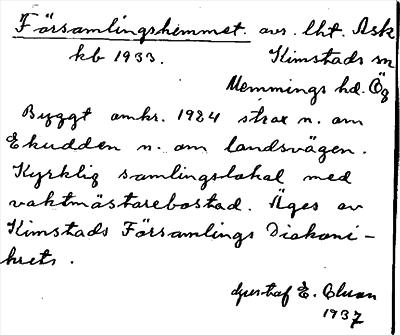 Församlingshemmet. avs. lht. Ask
kb 1933. Kimstads sn
Memmings hd. Ög
Byggt omkr. 1924 strax n. om
Ekudden n. om landsvägen.
Kyrklig samlingslokal med
vaktmästarebostad. Äges av
Kimstads Församlings Diakoni-
krets.
E.
1937